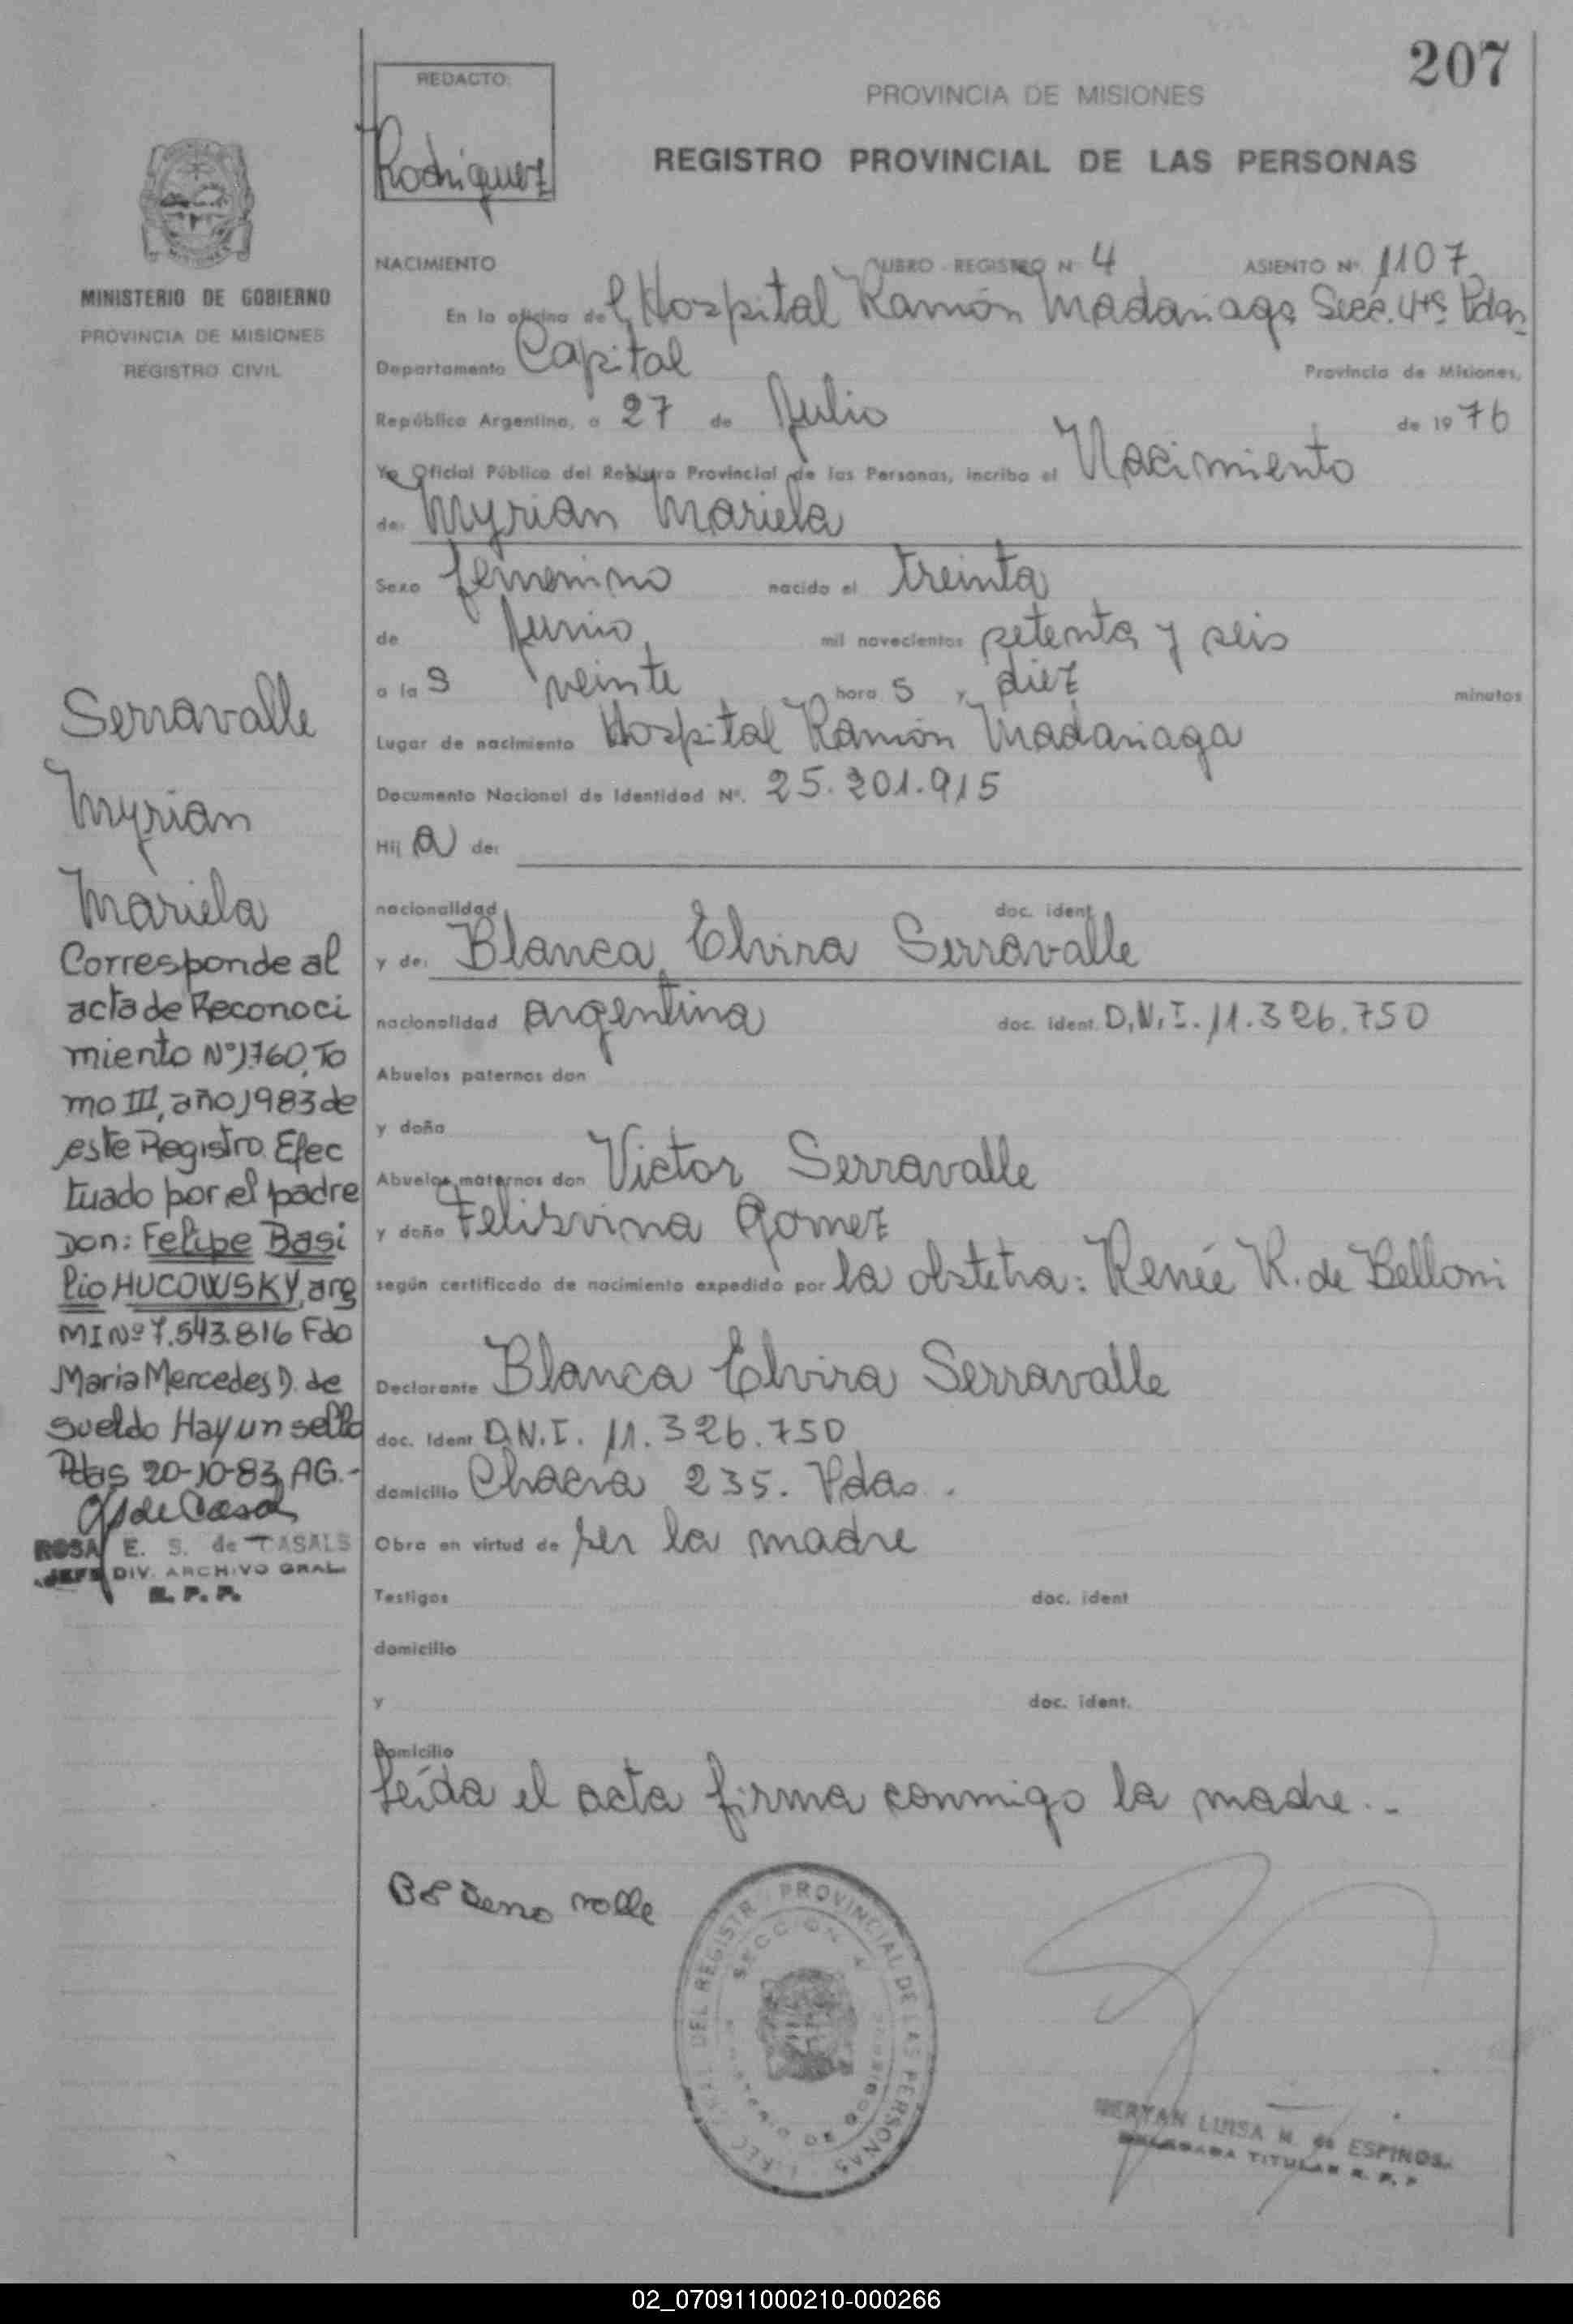 207
REDACTO:
Rodriguez
PROVINCIA DE MISIONES
REGISTRO PROVINCIAL DE LAS PERSONAS
MINISTERIO DE GOBIERNO
PROVINCIA DE MISIONES
REGISTRO CIVIL
NACIMIENTO LIBRO - REGISTRO Nº 4 ASIENTO Nº 1107
En la oficina del Hospital Ramón Madariaga Secc. 4ta Pdas
Departamento Capital Provincia de Misiones,
República Argentina, a 27 de Julio de 1976
Yo Oficial Público del Registro Provincial de las Personas, incribo el Nacimiento
de: Myrian Mariela
Sexo femenino nacido el treinta
de Junio mil novecientos setenta y seis
a la s veinte hora s y diez minutos
Lugar de nacimiento Hospital Ramón Madariaga
Documento Nacional de Identidad Nº. 25.201.915
Hij a de:
nacionalidad doc. ident
y de: Blanca Elvira Serravalle
nacionalidad argentina doc. ident. D.N.I. 11.326.750
Abuelos paternos don
y doña
Abuelos maternos don Victor Serravalle
y doña Felisvina Gomez
según certificado de nacimiento expedido por la obstetra: Renée R. de Belloni
Declarante Blanca Elvira Serravalle
doc. Ident D.N.I. 11.326.750
domicilio Chacra 235. Pdas.
Obra en virtud de ser la madre
Testigos doc. ident
domicilio
y doc. ident.
Domicilio
Leída el acta firma conmigo la madre..-
Serravalle
Myrian
Mariela
Corresponde al
acta de Reconoci
miento Nº 1760, To
mo III, año 1983 de
este Registro Efec
tuado por el padre
Don: Felipe Basi
lio HUCOWSKY, arg
MI Nº 7.543.816 Fdo
Maria Mercedes D. de
Sueldo Hay un sello
Pdas 20-10-83 AG.-
ROSA E. S. de CASALS
JEFE DIV. ARCHIVO GRAL.
R. P. P.
PROVINCIAL DE LAS PERSONAS
SECCION 4
DEL REGISTR
MERYAN LUISA M. de ESPINOS
DELEGADA TITULAR R. P. P
02_070911000210-000266